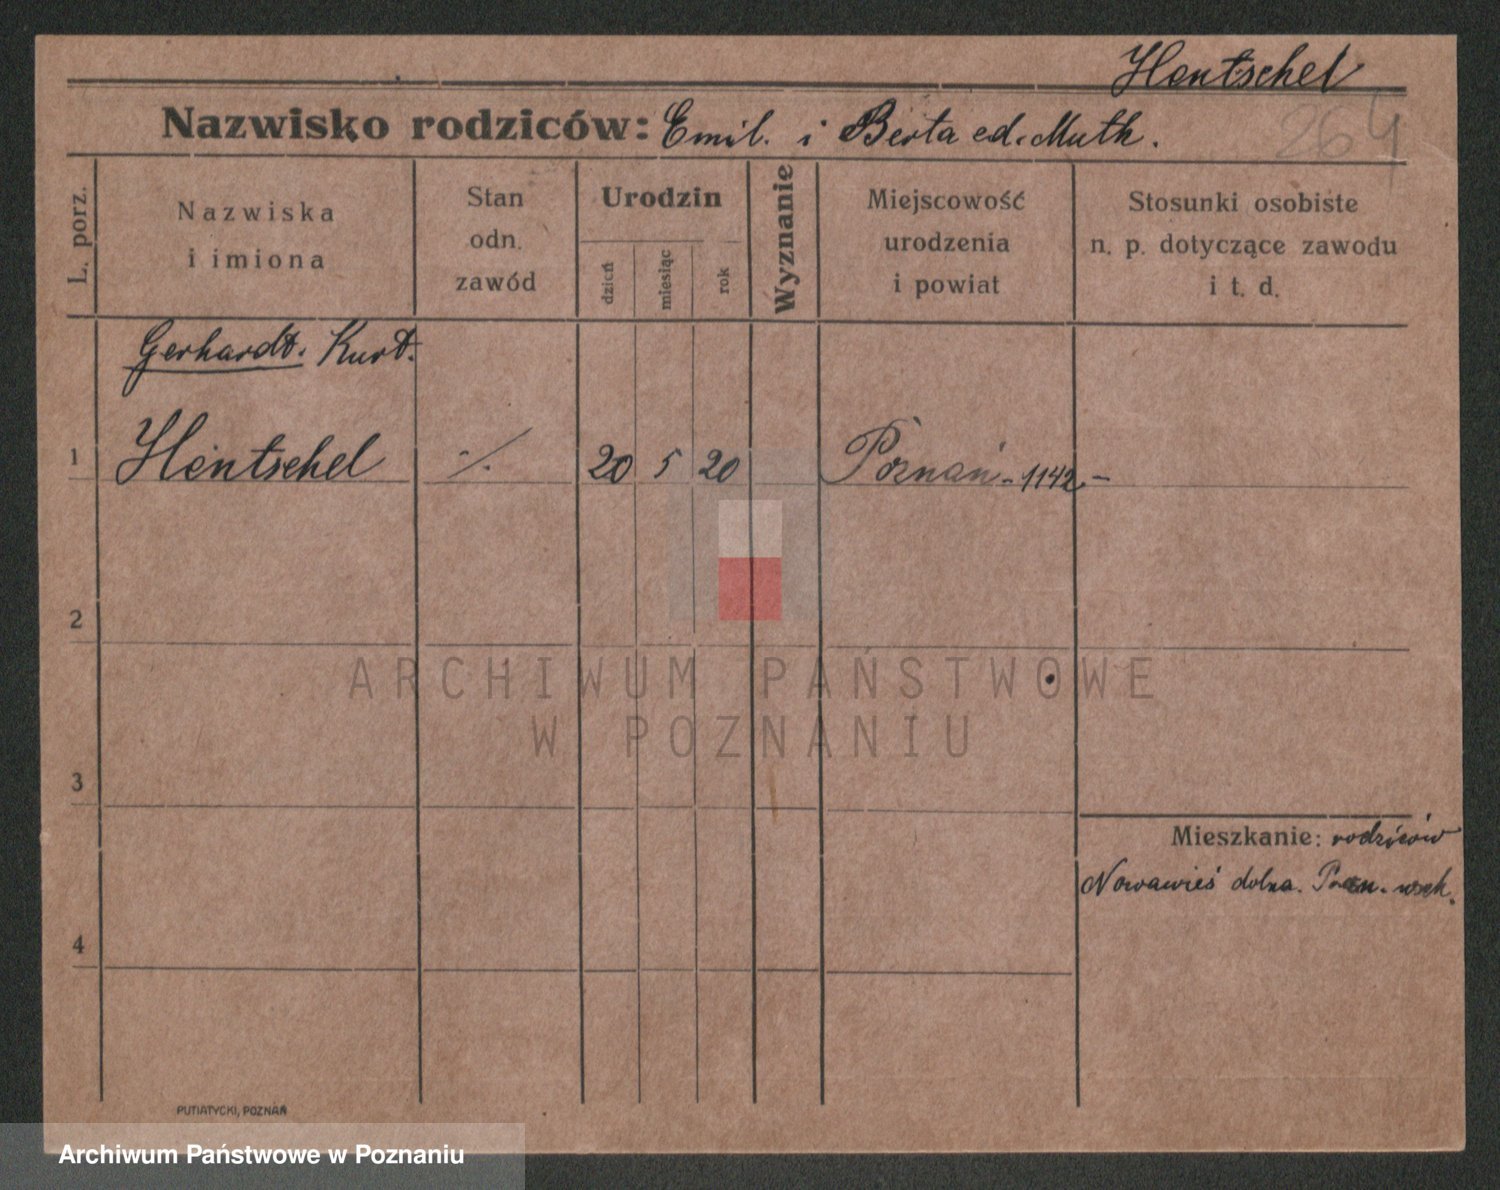 Hentschel
Nazwisko rodziców: Emil. i Berta ed. Muth.
264
L. porz.
Nazwiska
i imiona
Stan
odn.
zawód
Urodzin
dzień
miesiąc
rok
Wyznanie
Miejscowość
urodzenia
i powiat
Stosunki osobiste
n. p. dotyczące zawodu
i t. d.
Gerhardt. Kurt.
1 Hentschel ·/. 20 5 20 Poznań - 1142.-
2
ARCHIWUM PAŃSTWOWE
W POZNANIU
3
Mieszkanie: rodziców
Nowawieś dolna. Pozn. wsch.
4
PUTIATYCKI, POZNAŃ
Archiwum Państwowe w Poznaniu